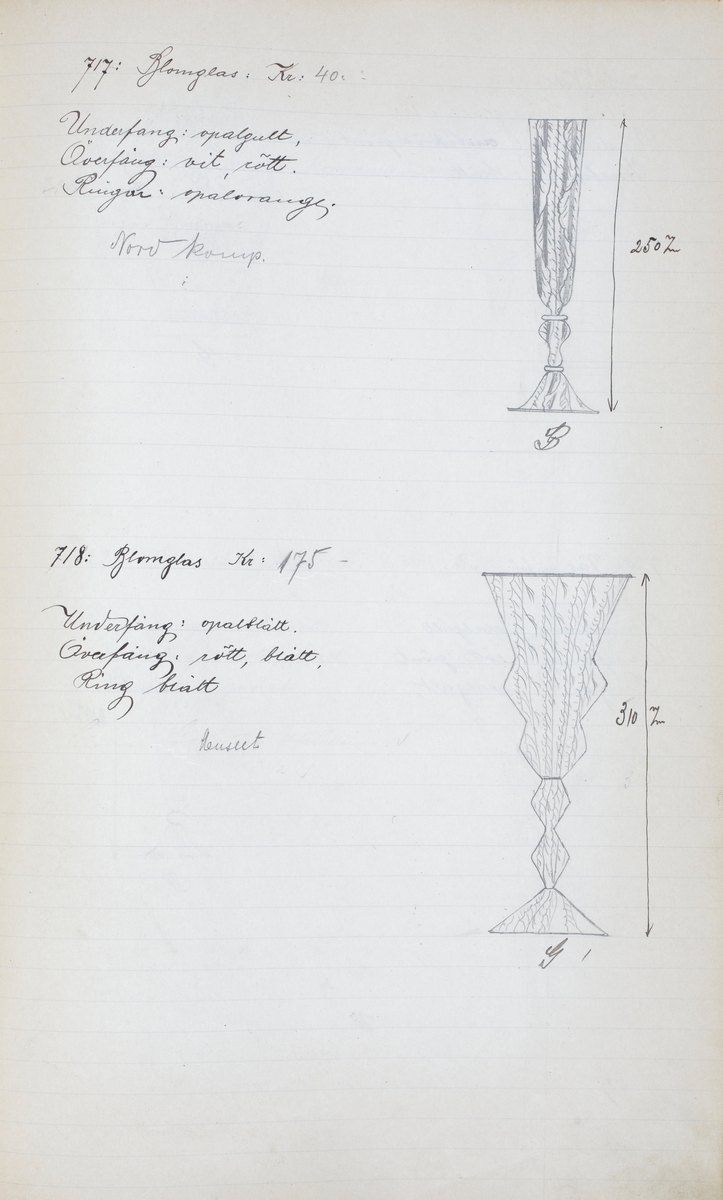 717: Blomglas: Kr: 40:
Underfang: opalgult,
Överfång: vit, rött.
Ringar: opalorange.
Nord komp.
250 m/m
B
718: Blomglas Kr: 175 -
Underfång: opalblått.
Överfång: rött, blått,
Ring blått
310 m/m
G